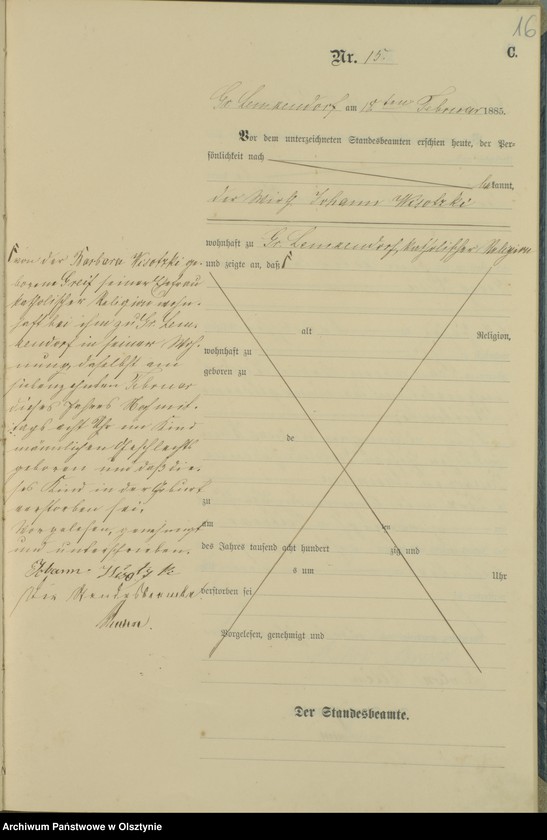 16
C.
Nr. 15.
Gr Lemkendorf am 18ten Februar 1885.
Vor dem unterzeichneten Standesbeamten erschien heute, der Per-
sönlichkeit nach
bekannt,
der Wirth Johann Wysotzki
wohnhaft zu Gr Lemkendorf, katholischer Religion
und zeigte an, daß
von der Barbara Wysotzki ge-
borene Greif seiner Ehefrau
katholischer Religion wohn-
haft bei ihm zu Gr. Lem-
kendorf in seiner Woh-
nung daselbst am
siebenzehnten Februar
dieses Jahres Nachmit-
tags acht Uhr ein Kind
männlichen Geschlechts
geboren und daß die-
ses Kind in der Geburt
verstorben sei.
Vorgelesen, genehmigt
und unterschrieben.
Johann
Der Standesbeamte.
alt Religion,
wohnhaft zu
geboren zu
de
zu
am ten
des Jahres tausend acht hundert zig und
s um Uhr
verstorben sei
Vorgelesen, genehmigt und
Der Standesbeamte.
Archiwum Państwowe w Olsztynie